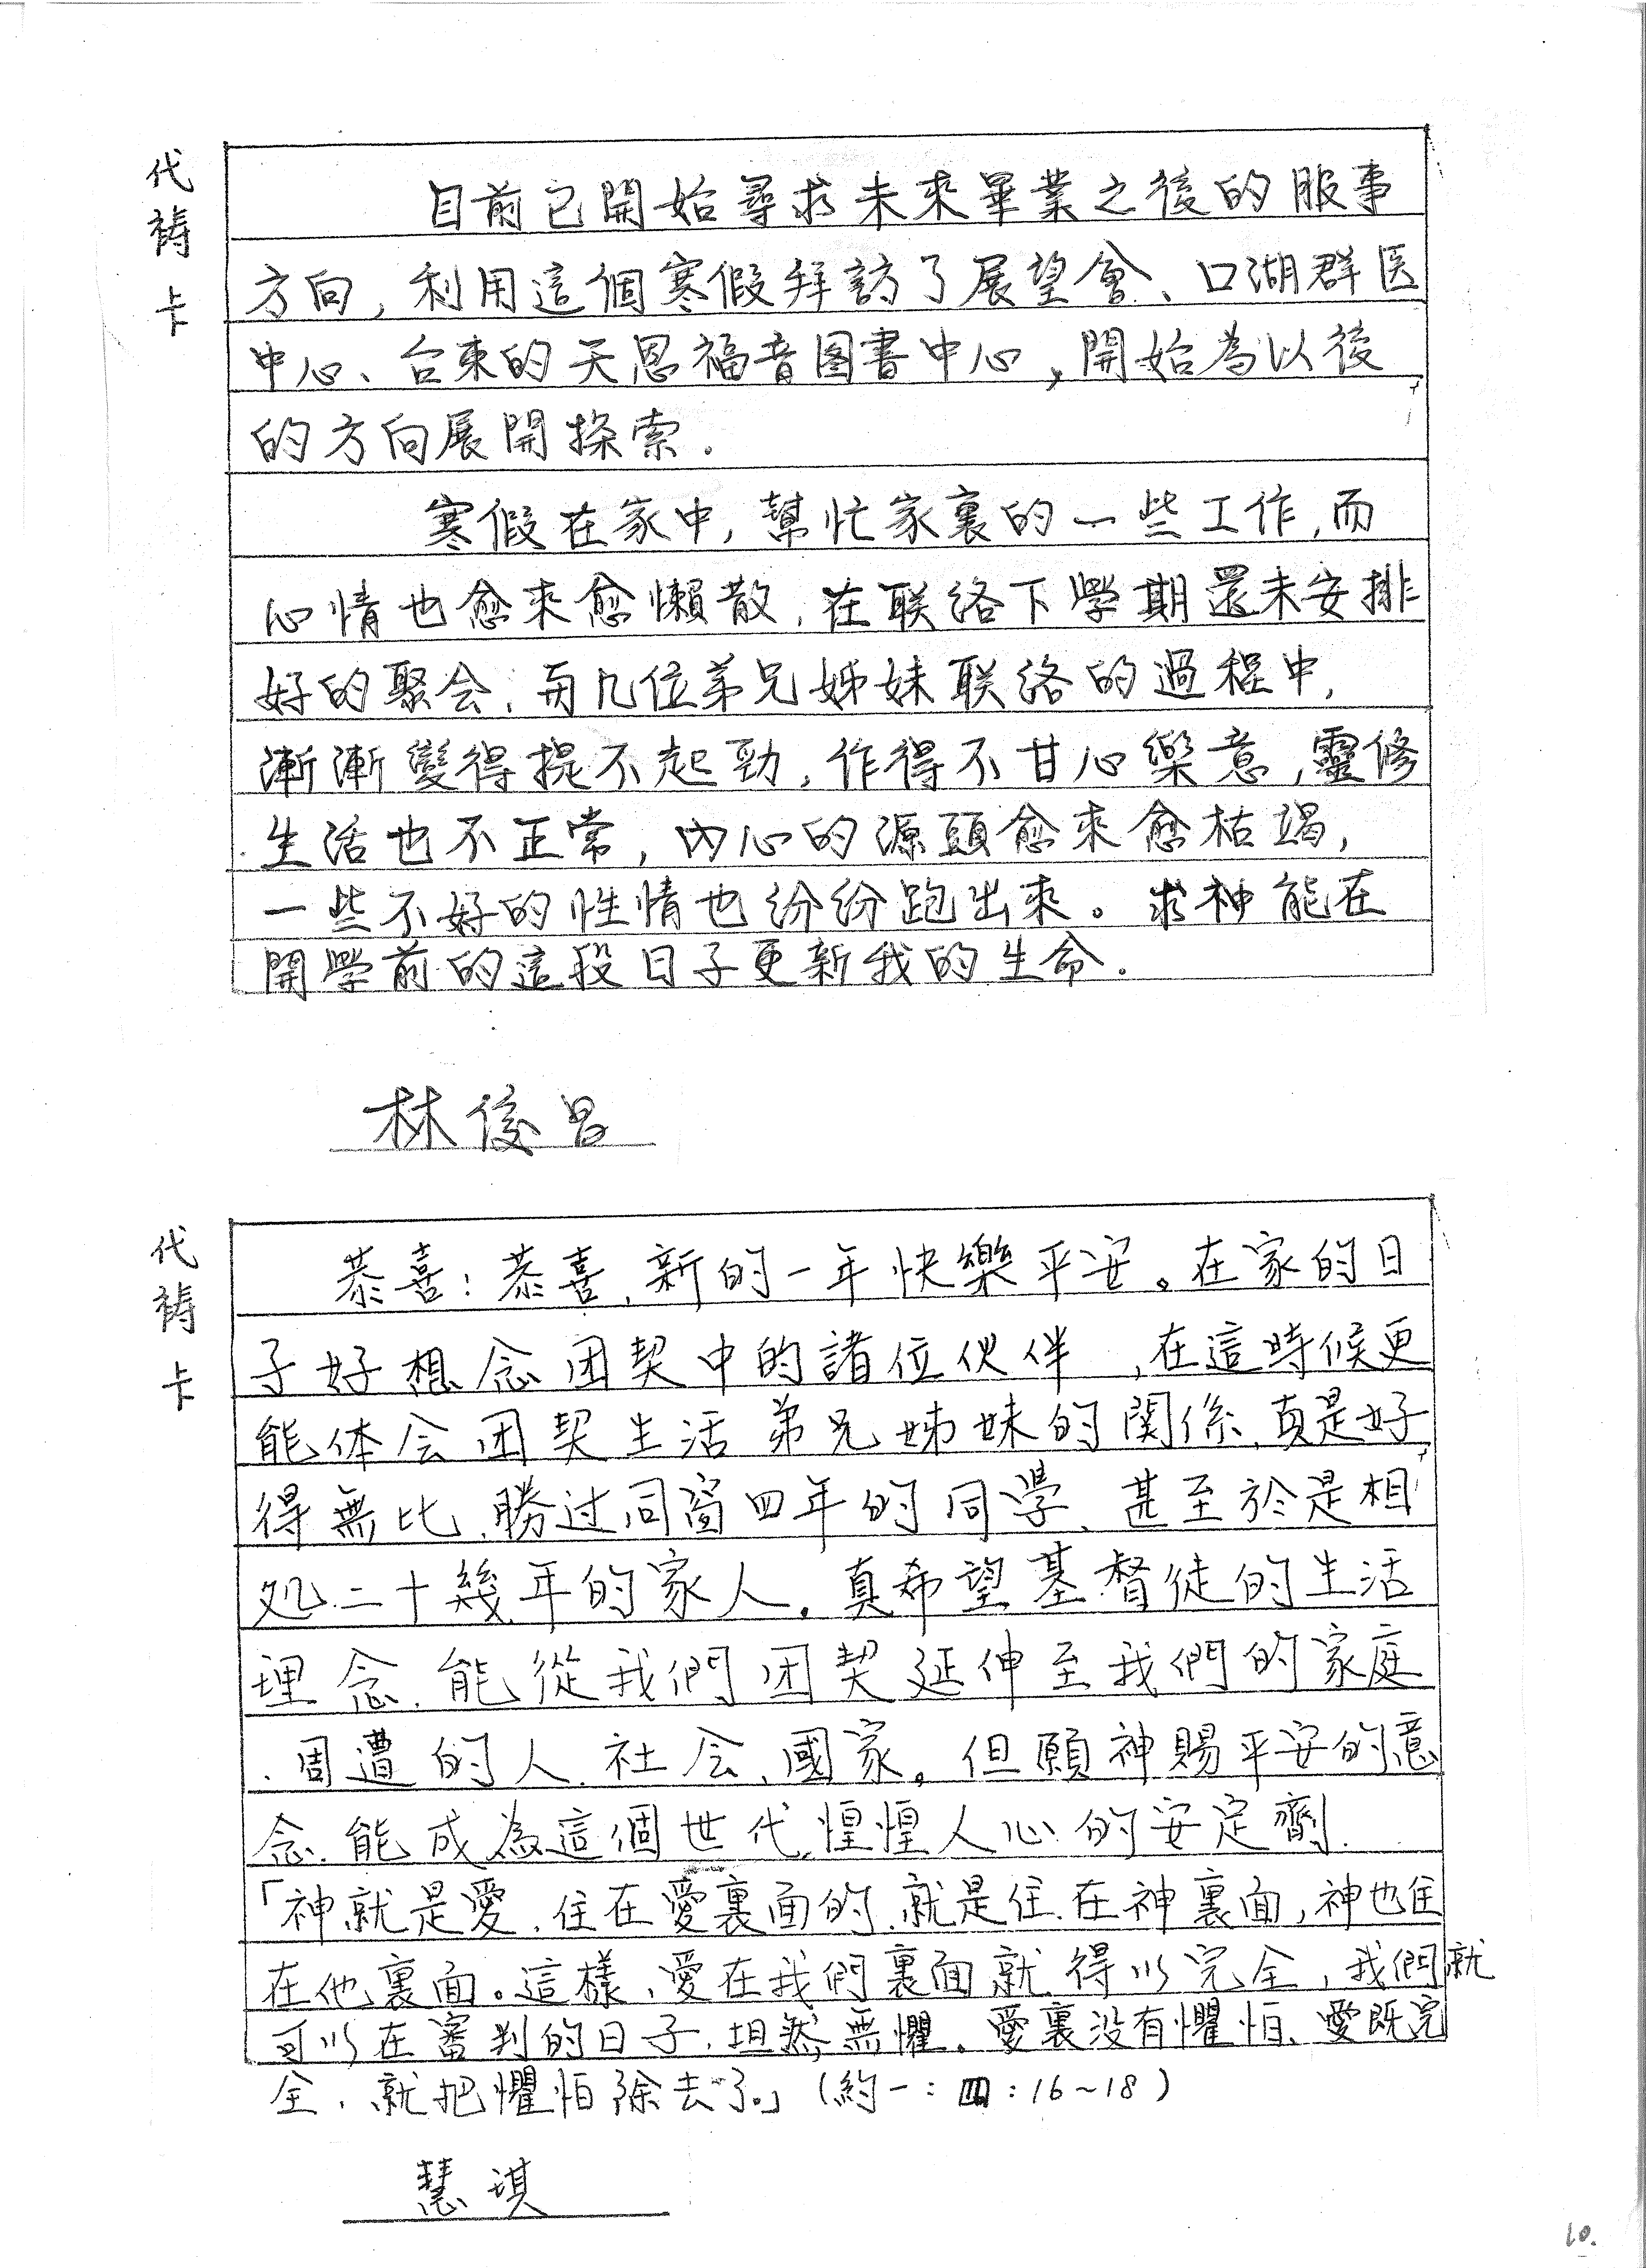 代禱卡
目前已開始尋求未來畢業之後的服事
方向,利用這個寒假拜訪了展望會、口湖群医
中心、台東的天恩福音图書中心,開始為以後
的方向展開探索.
寒假在家中,幫忙家裏的一些工作,而
心情也愈來愈懶散,在联络下學期還未安排
好的聚会,而几位弟兄姊妹联络的過程中,
漸漸變得提不起勁,作得不甘心樂意,靈修
生活也不正常,內心的源頭愈來愈枯竭,
一些不好的性情也紛紛跑出來。求神能在
開學前的這段日子更新我的生命.
林俊昌
代禱卡
恭喜:恭喜,新的一年快樂平安。在家的日
子好想念团契中的諸位伙伴,在這時候更
能体会团契生活弟兄姊妹的関係,真是好
得無比,勝过同窗四年的同學、甚至於是相
処二十幾年的家人。真希望基督徒的生活
理念,能從我們团契延伸至我們的家庭
、周遭的人、社会、國家。但願神賜平安的意
念,能成為這個世代,惶惶人心的安定劑.
「神就是愛,住在愛裏面的,就是住在神裏面,神也住
在他裏面。這樣,愛在我們裏面就得以完全,我們就
可以在審判的日子,坦然無懼。愛裏没有懼怕、愛既完
全,就把懼怕除去了。」(約一:四:16~18)
慧琪
10.